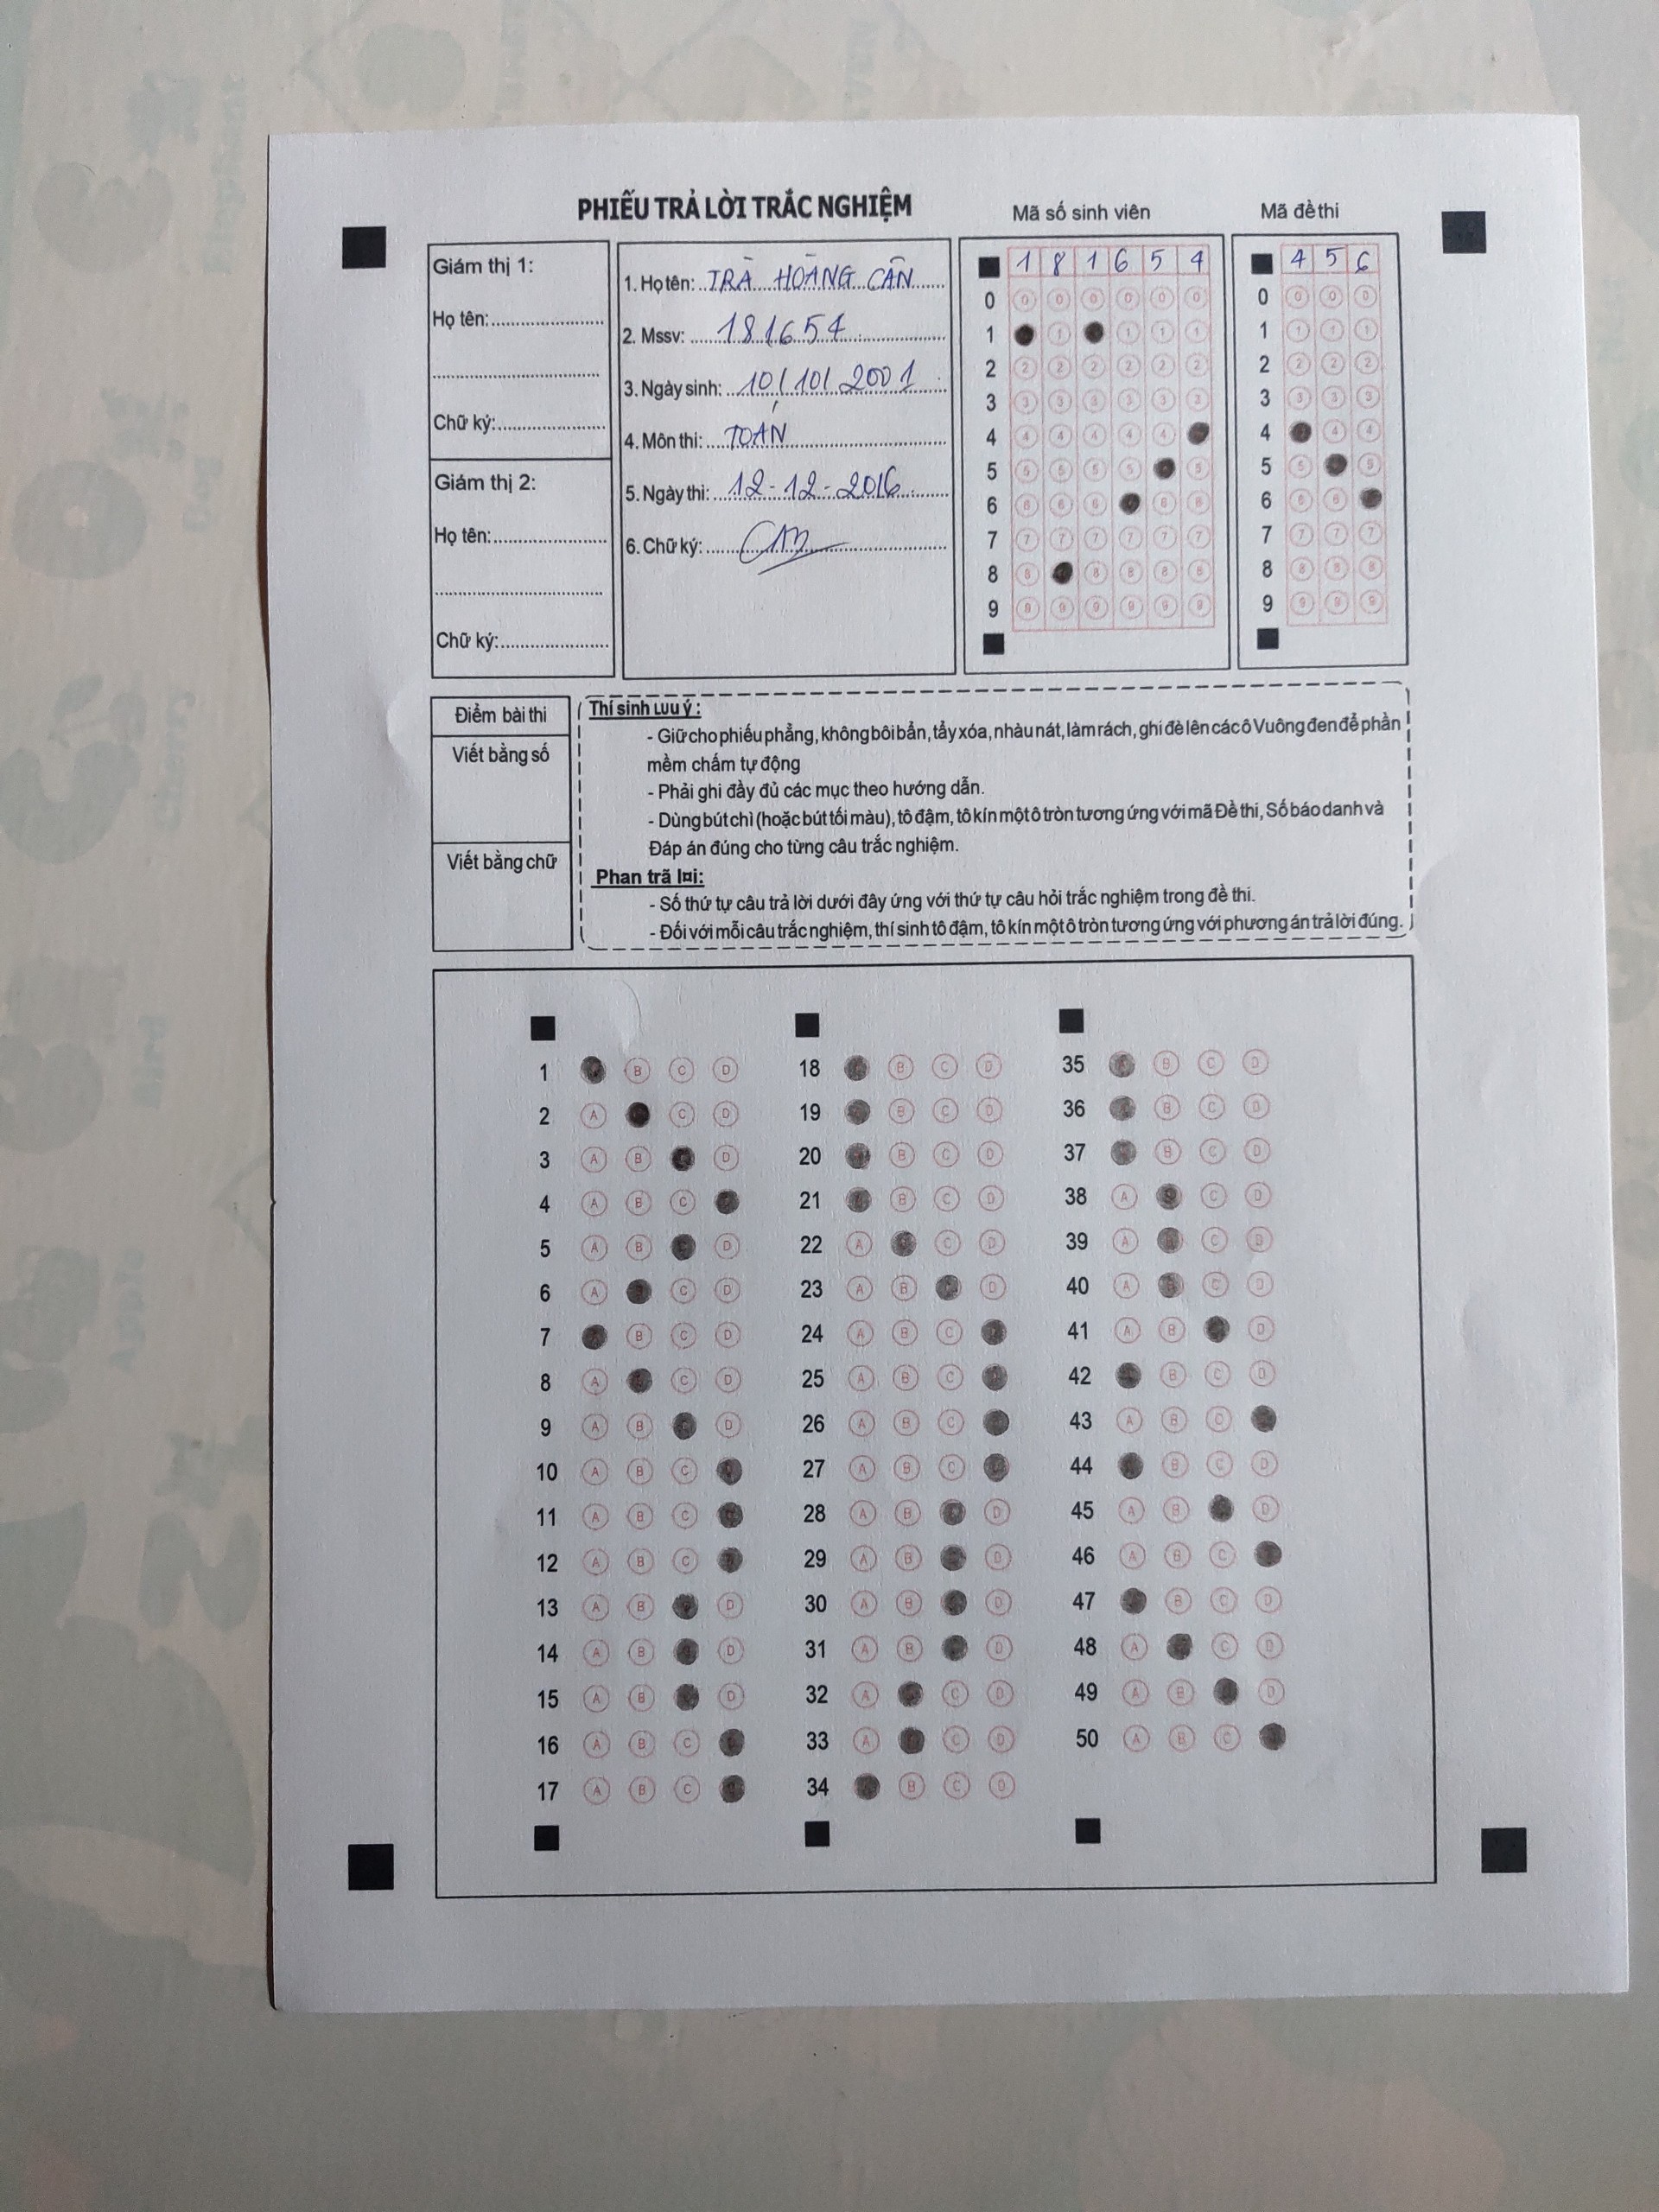 PHIẾU TRẢ LỜI TRẮC NGHIỆM
Mã số sinh viên
Mã đề thi
Giám thị 1:
Họ tên:
Chữ ký:
Giám thị 2:
Họ tên:
Chữ ký:
1. Họ tên: TRÀ HOÀNG CẦN
2. Mssv: 181654
3. Ngày sinh: 10/10/2001
4. Môn thi: TOÁN
5. Ngày thi: 12-12-2016
6. Chữ ký:
1 8 1 6 5 4
0 0 0 0 0 0 0
1 1 1 1 1
2 2 2 2 2 2 2
3 3 3 3 3 3 3
4 4 4 4 4 4
5 5 5 5 5 5
6 6 6 6 6 6
7 7 7 7 7 7 7
8 8 8 8 8 8
9 9 9 9 9 9 9
4 5 6
0 0 0 0
1 1 1 1
2 2 2 2
3 3 3 3
4 4 4
5 5 5
6 6 6
7 7 7 7
8 8 8 8
9 9 9 9
Điểm bài thi
Viết bằng số
Viết bằng chữ
Thí sinh Lưu ý :
- Giữ cho phiếu phẳng, không bôi bẩn, tẩy xóa, nhàu nát, làm rách, ghi đè lên các ô Vuông đen để phần
mềm chấm tự động
- Phải ghi đầy đủ các mục theo hướng dẫn.
- Dùng bút chì (hoặc bút tối màu), tô đậm, tô kín một ô tròn tương ứng với mã Đề thi, Số báo danh và
Đáp án đúng cho từng câu trắc nghiệm.
Phan trã l¤i:
- Số thứ tự câu trả lời dưới đây ứng với thứ tự câu hỏi trắc nghiệm trong đề thi.
- Đối với mỗi câu trắc nghiệm, thí sinh tô đậm, tô kín một ô tròn tương ứng với phương án trả lời đúng.
1 B C D
2 A C D
3 A B D
4 A B C
5 A B D
6 A C D
7 B C D
8 A C D
9 A B D
10 A B C
11 A B C
12 A B C
13 A B D
14 A B D
15 A B D
16 A B C
17 A B C
18 B C D
19 B C D
20 B C D
21 B C D
22 A C D
23 A B D
24 A B C
25 A B C
26 A B C
27 A B C
28 A B D
29 A B D
30 A B D
31 A B D
32 A C D
33 A C D
34 B C D
35 B C D
36 B C D
37 B C D
38 A C D
39 A C D
40 A C D
41 A B D
42 B C D
43 A B C
44 B C D
45 A B D
46 A B C
47 B C D
48 A C D
49 A B D
50 A B C